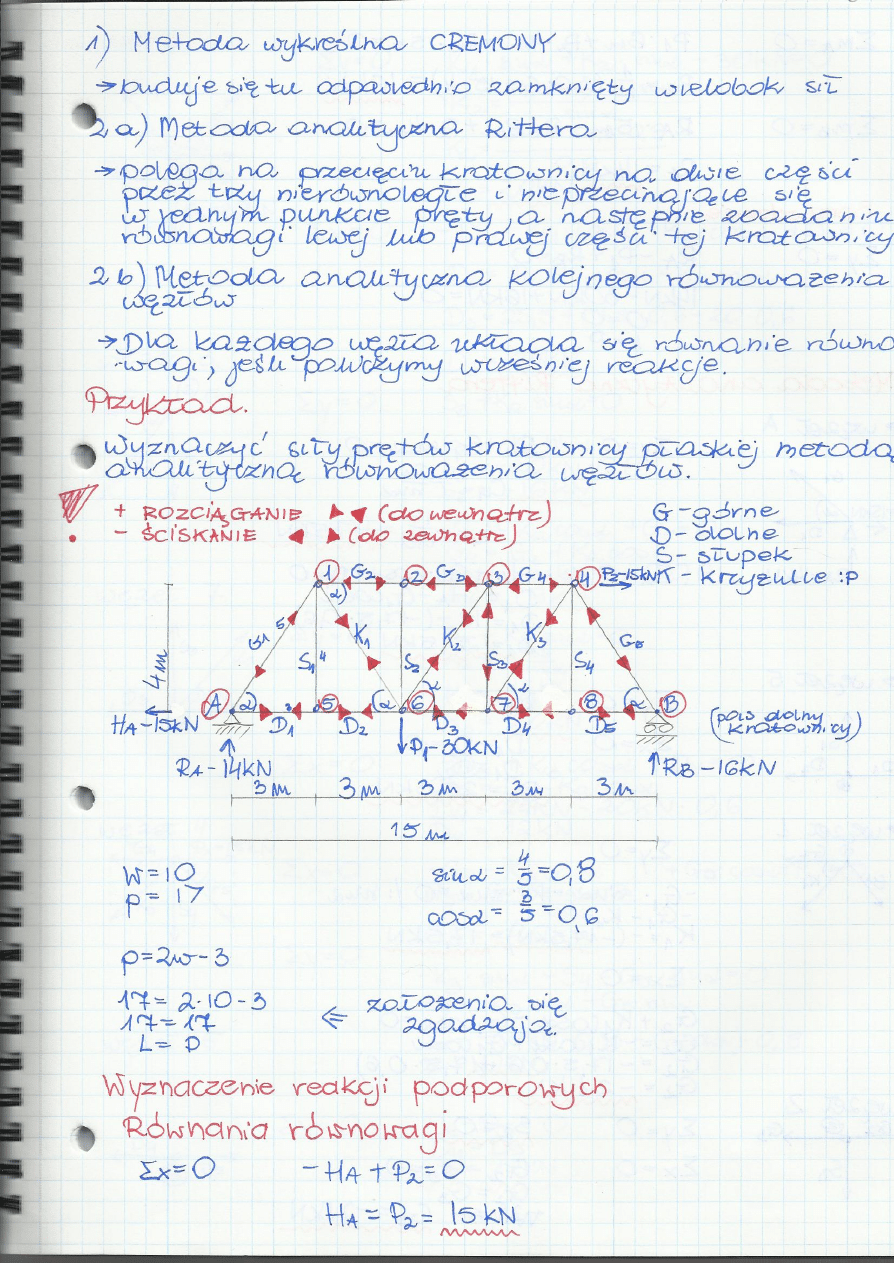 1) Metoda wykreślna CREMONY
→ buduje się tu odpowiednio zamknięty wielobok sił
2a) Metoda analityczna Rittera
→ polega na przecięciu kratownicy na dwie części
przez trzy nierównoległe i nieprzecinające się
w jednym punkcie pręty, a następnie zbadaniu
równowagi lewej lub prawej części tej kratownicy
2b) Metoda analityczna kolejnego równoważenia
węzłów
→ Dla każdego węzła układa się równanie równo
wagi, jeśli policzymy wcześniej reakcje.
Przykład.
Wyznaczyć siły prętów kratownicy płaskiej metodą
analityczną równoważenia węzłów.
+ ROZCIĄGANIE (do wewnątrz)
- ŚCISKANIE (do zewnątrz)
G - górne
D - dolne
S - słupek
K - krzyżulce :P
1 G2 2 G3 3 G4 4 P2-15kN
α
4m G1 5 S1 4 K1 S2 K2 S3 K3 S4 G5
A α 3 5 α 6 α 7 α 8 α B
HA-15kN D1 D2 D3 D4 D5
(pas dolny
kratownicy)
P1-30kN
RA-14kN
RB-16kN
3m 3m 3m 3m 3m
15m
W=10
p=17
sinα = 4/5 = 0,8
cosα = 3/5 = 0,6
p=2w-3
17= 2·10-3
17=17
L= P
⇐ założenia się
zgadzają.
Wyznaczenie reakcji podporowych
Równania równowagi
Σx=0 -HA+P2=0
HA = P2 = 15 kN